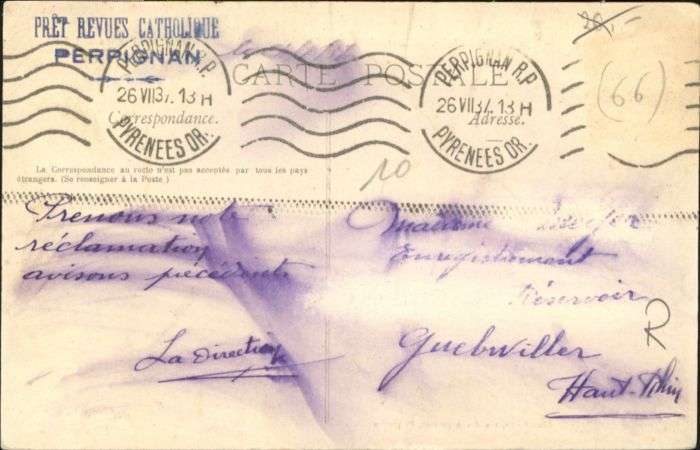 PRÊT REVUES CATHOLIQUE
PERPIGNAN
PERPIGNAN R.P
26 VII 37. 13 H
PYRENEES OR.
PERPIGNAN R.P
26 VII 37. 13 H
PYRENEES OR.
CARTE POSTALE
Correspondance.
Adresse.
(66)
La Correspondance au recto n'est pas acceptée par tous les pays
étrangers. (Se renseigner à la Poste)
10
Prenons note
réclamation
avisons précédent
La Direction
Madame
Enregistrement
Réservoir
R
Guebwiller
Haut-Rhin